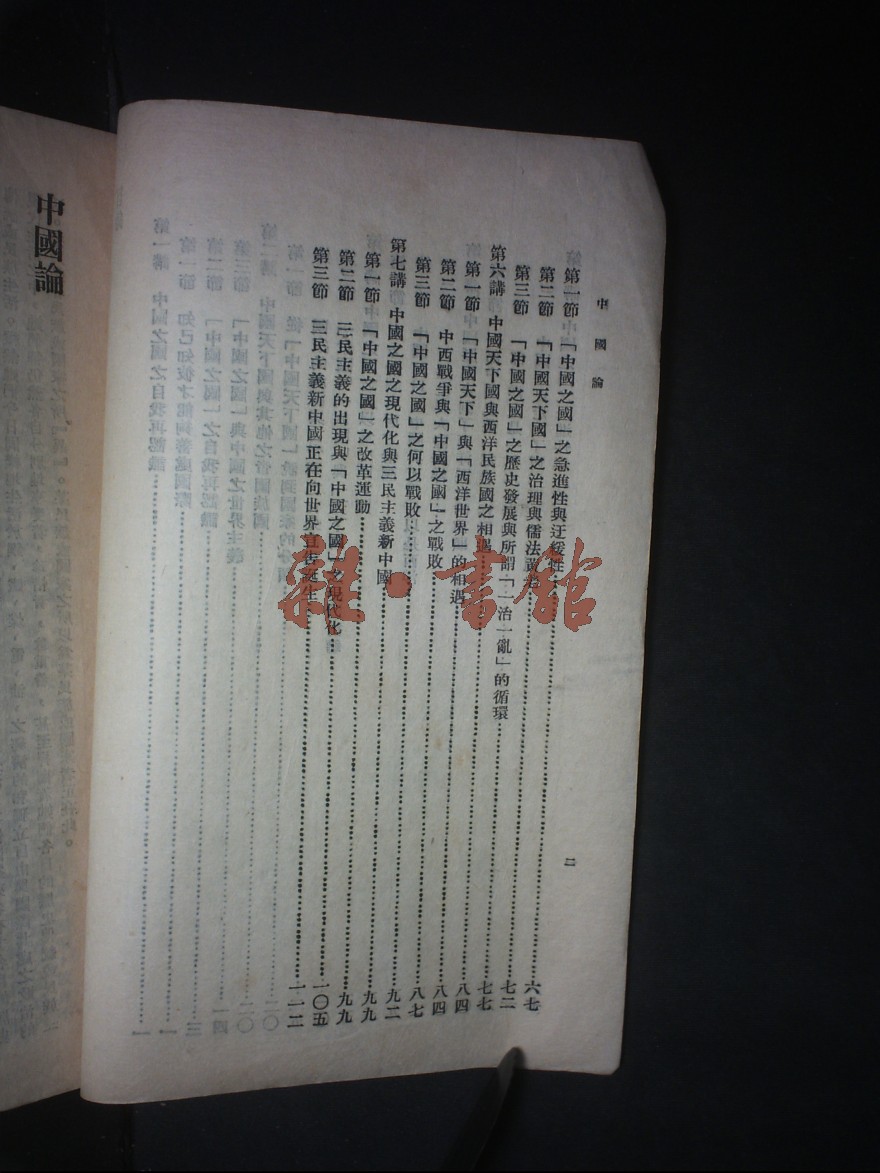 中國論
二
第一節 「中國之國」之急進性與迂緩性……六七
第二節 「中國天下國」之治理與儒法……七二
第三節 「中國之國」之歷史發展與所謂「一治一亂」的循環……七七
第六講 中國天下國與西洋民族國之相遇……八四
第一節 「中國天下」與「西洋世界」的相遇……八四
第二節 中西戰爭與「中國之國」之戰敗……八七
第三節 「中國之國」之何以戰敗……九二
第七講 中國之國之現代化與三民主義新中國……九九
第一節 「中國之國」之改革運動……九九
第二節 三民主義的出現與「中國之國」之現代化……一〇五
第三節 三民主義新中國正在向世界宣告誕生……一一二
中國論
雜·書館